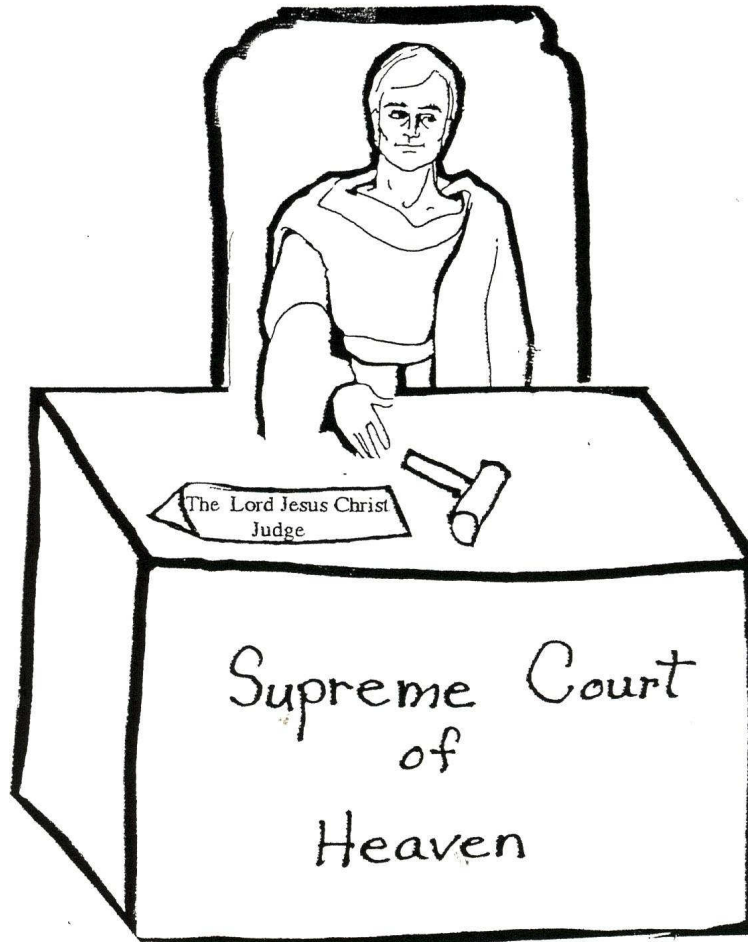 The Lord Jesus Christ
Judge
Supreme Court
of
Heaven